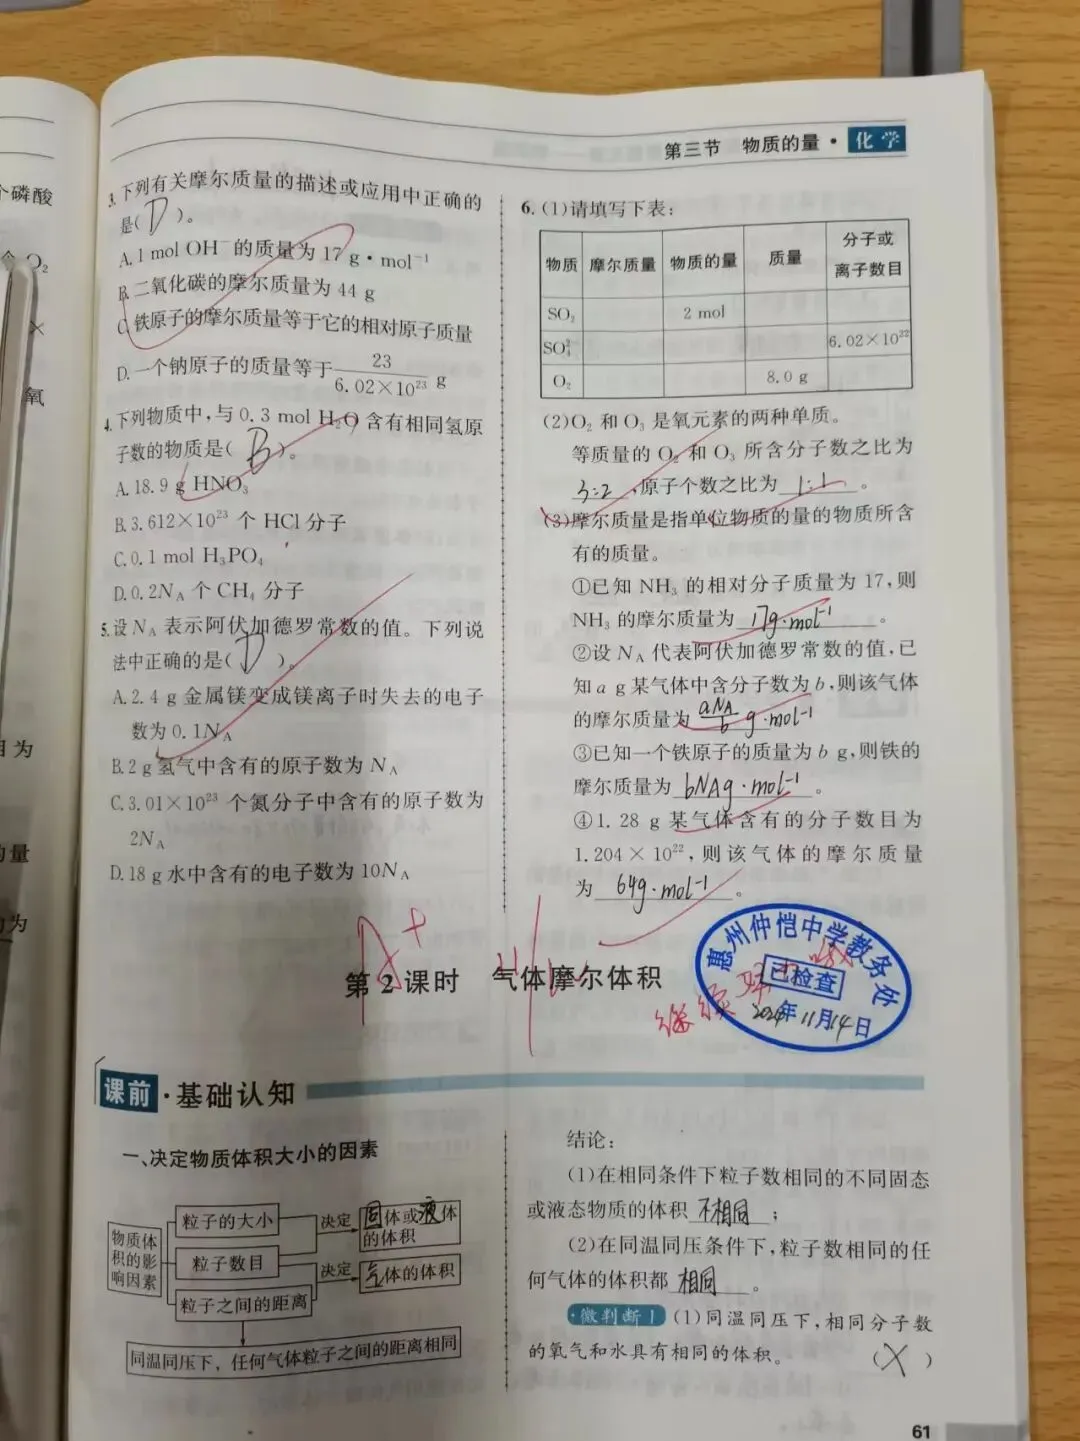 第三节 物质的量·化学
个磷酸
O₂
×
氧
目为
的量
为
3.下列有关摩尔质量的描述或应用中正确的
是( D )。
A.1 mol OH⁻的质量为17 g·mol⁻¹
B.二氧化碳的摩尔质量为44 g
C.铁原子的摩尔质量等于它的相对原子质量
D.一个钠原子的质量等于23/6.02×10²³ g
4.下列物质中,与0.3 mol H₂O含有相同氢原
子数的物质是( B )。
A.18.9 g HNO₃
B.3.612×10²³ 个 HCl 分子
C.0.1 mol H₃PO₄
D.0.2N_A 个 CH₄ 分子
5.设N_A表示阿伏加德罗常数的值。下列说
法中正确的是( D )。
A.2.4 g金属镁变成镁离子时失去的电子
数为0.1N_A
B.2 g氢气中含有的原子数为N_A
C.3.01×10²³ 个氮分子中含有的原子数为
2N_A
D.18 g水中含有的电子数为10N_A
6.(1)请填写下表:
物质 摩尔质量 物质的量 质量 分子或离子数目
SO₂ 2 mol
SO₄²⁻ 6.02×10²²
O₂ 8.0 g
(2)O₂和O₃是氧元素的两种单质。
等质量的O₂和O₃所含分子数之比为
3:2,原子个数之比为 1:1 。
(3)摩尔质量是指单位物质的量的物质所含
有的质量。
①已知NH₃的相对分子质量为17,则
NH₃的摩尔质量为 17g·mol⁻¹ 。
②设N_A代表阿伏加德罗常数的值,已
知a g某气体中含分子数为b,则该气体
的摩尔质量为 aNA/b g·mol⁻¹
③已知一个铁原子的质量为b g,则铁的
摩尔质量为 bNAg·mol⁻¹ 。
④1.28 g某气体含有的分子数目为
1.204×10²²,则该气体的摩尔质量
为 64g·mol⁻¹ 。
A⁺
惠州仲恺中学教务处
已检查
2024年11月14日
继续
第2课时 气体摩尔体积
课前·基础认知
一、决定物质体积大小的因素
物质体积的影响因素
粒子的大小
粒子数目
粒子之间的距离
决定
固体或液体的体积
决定
气体的体积
同温同压下,任何气体粒子之间的距离相同
结论:
(1)在相同条件下粒子数相同的不同固态
或液态物质的体积 不相同 ;
(2)在同温同压条件下,粒子数相同的任
何气体的体积都 相同 。
·微判断1 (1)同温同压下,相同分子数
的氧气和水具有相同的体积。 ( X )
61